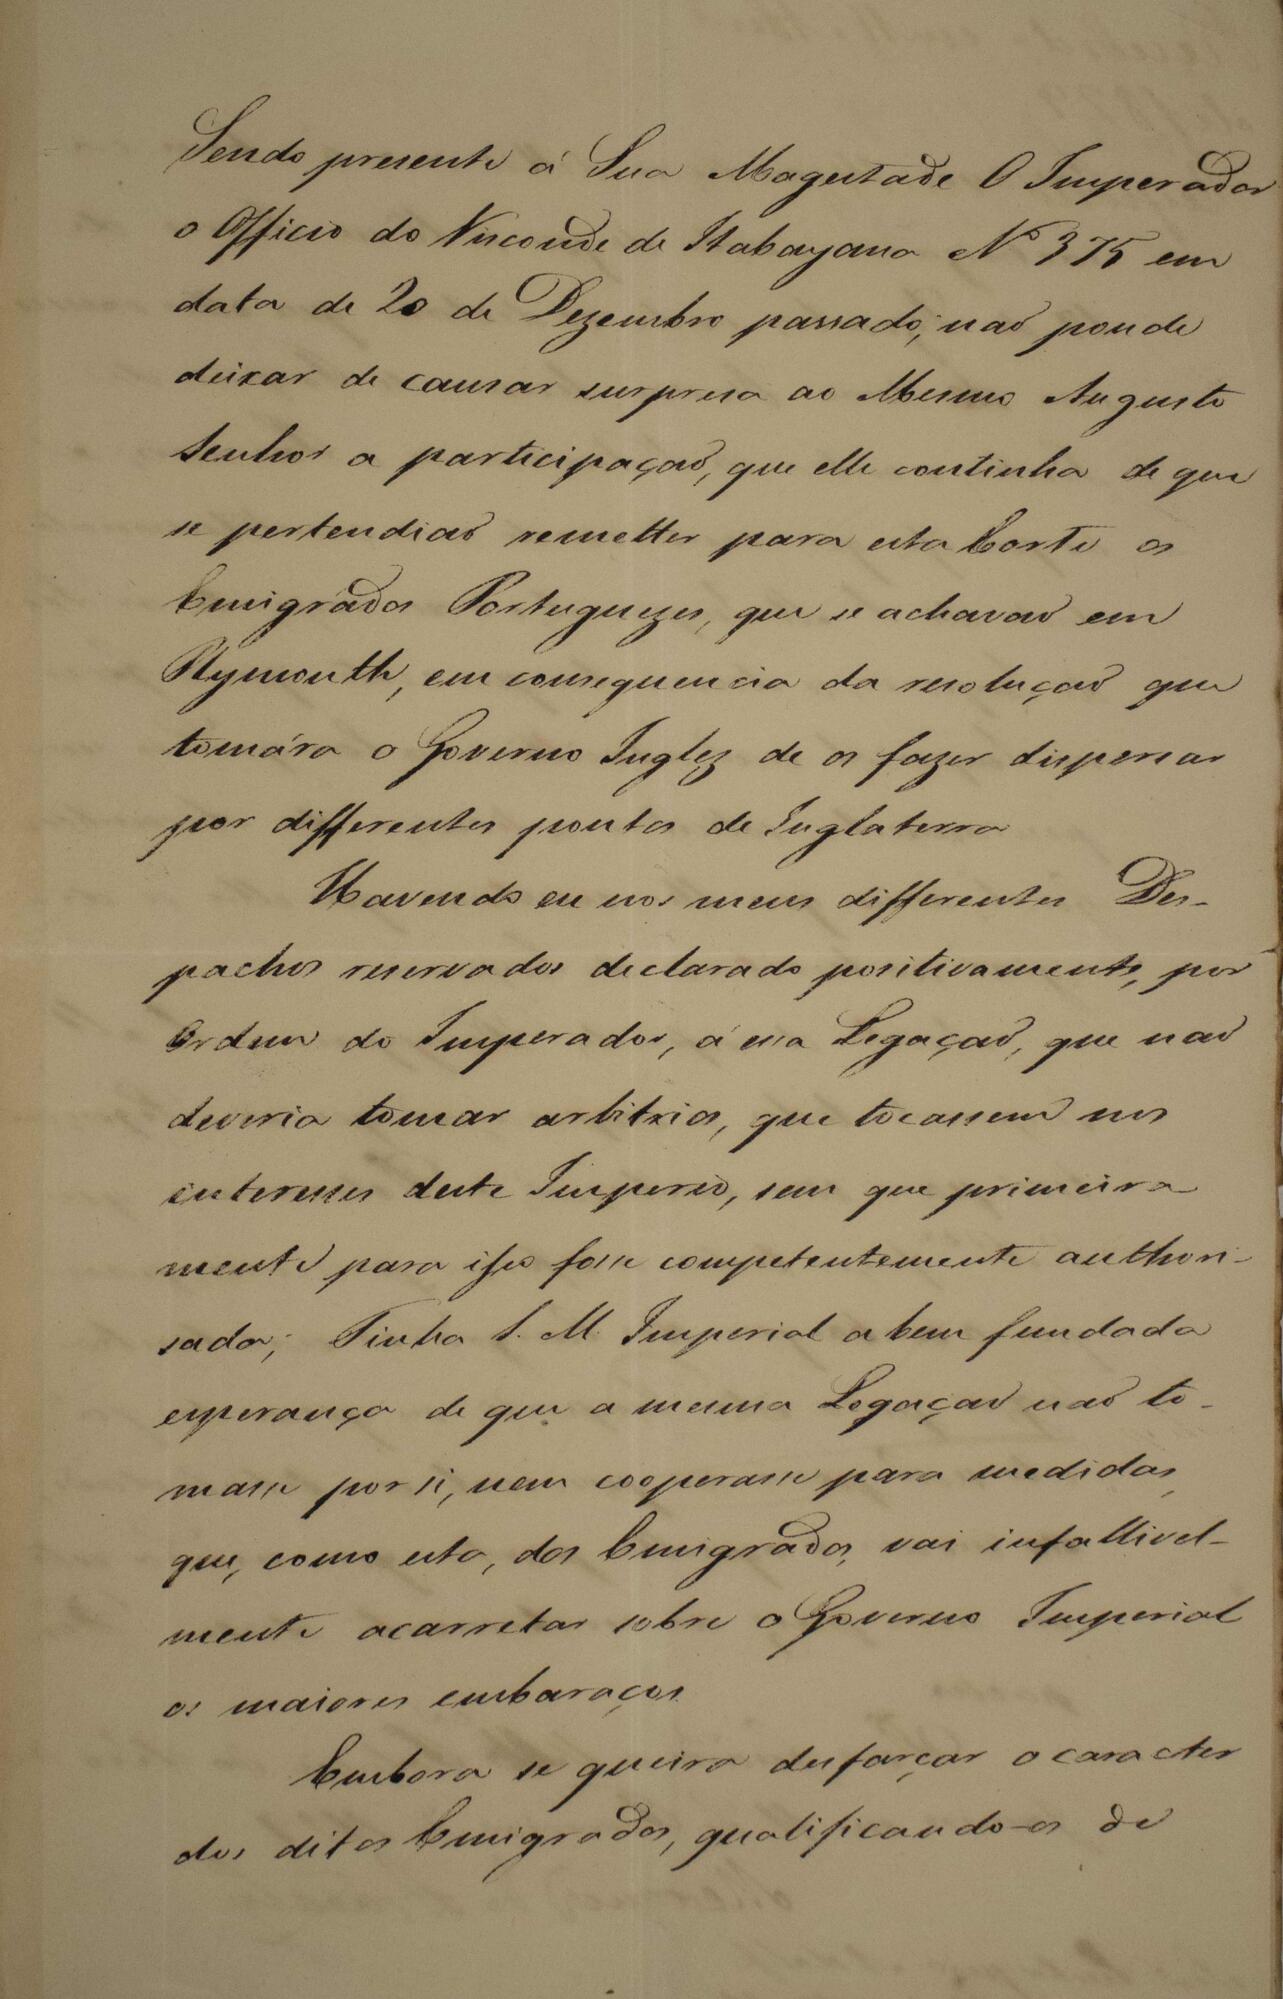 Sendo presente á Sua Magestade O Imperador
o Officio do Visconde de Itabayana Nº 375 em
data de 20 de Dezembro passado, naõ poude
deixar de causar surpresa ao Mesmo Augusto
Senhor a participaçaõ, que elle continha de que
se pertendiaõ remetter para esta Corte os
Emigrados Portuguezes, que se achavaõ em
Plymouth, em consequencia da resoluçaõ que
tomára o Governo Inglez de os fazer dispersar
por differentes pontos de Inglaterra
Havendo eu nos meus differentes Des-
pachos reservados declarado positivamente, por
Ordem do Imperador, á essa Legaçaõ, que naõ
deveria tomar arbitrios, que tocassem nos
interesses deste Imperio, sem que primeira
mente para isso fosse competentemente authori-
sada; Tinha S. M. Imperial a bem fundada
esperança de que a mesma Legaçaõ naõ to-
masse por si, nem cooperasse para medidas,
que, como esta, dos Emigrados, vai infallivel-
mente acarretar sobre o Governo Imperial
os maiores embaraços
Embora se queira desfarçar o caracter
dos ditos Emigrados, qualificando-os de